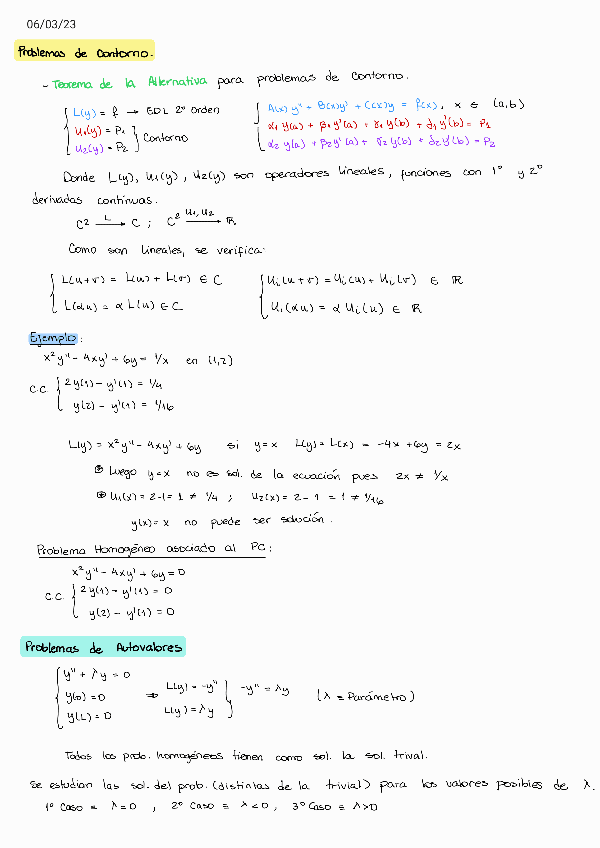 06/03/23
Problemas de Contorno.
- Teorema de la Alternativa para problemas de Contorno.
L(y) = f → EDL 2º orden
U₁(y) = P₁
U₂(y) = P₂
Contorno
A(x) y'' + B(x)y' + C(x)y = f(x), x ∈ (a,b)
α₁ y(a) + β₁ y'(a) + γ₁ y(b) + δ₁ y'(b) = P₁
α₂ y(a) + β₂ y'(a) + γ₂ y(b) + δ₂ y'(b) = P₂
Donde L(y), U₁(y), U₂(y) son operadores lineales, funciones con 1º y 2º
derivadas continuas.
C² —L→ C ; C² —U₁,U₂→ ℝ
Como son lineales, se verifica:
L(u+v) = L(u) + L(v) ∈ C
L(αu) = α L(u) ∈ C
Uᵢ(u+v) = Uᵢ(u) + Uᵢ(v) ∈ ℝ
Uᵢ(αu) = α Uᵢ(u) ∈ ℝ
Ejemplo:
x²y'' - 4xy' + 6y = 1/x en (1,2)
C.C. { 2y(1) - y'(1) = 1/4
y(2) - y'(1) = 1/16
L(y) = x²y'' - 4xy' + 6y si y=x L(y) = L(x) = -4x + 6y = 2x
⊛ Luego y=x no es sol. de la ecuación pues 2x ≠ 1/x
⊛ U₁(x) = 2-1 = 1 ≠ 1/4 ; U₂(x) = 2 - 1 = 1 ≠ 1/16
y(x) = x no puede ser solución.
Problema Homogéneo asociado al PC:
x²y'' - 4xy' + 6y = 0
C.C. { 2y(1) - y'(1) = 0
y(2) - y'(1) = 0
Problemas de Autovalores
y'' + λy = 0
y(0) = 0
y(L) = 0
⇒ L(y) = -y''
L(y) = λy
-y'' = λy (λ ≡ Parámetro)
Todos los prob. homogéneos tienen como sol. la sol. trival.
Se estudian las sol. del prob. (distintas de la trivial) para los valores posibles de λ.
1º Caso ≡ λ=0 , 2º Caso ≡ λ<0 , 3º Caso ≡ λ>0